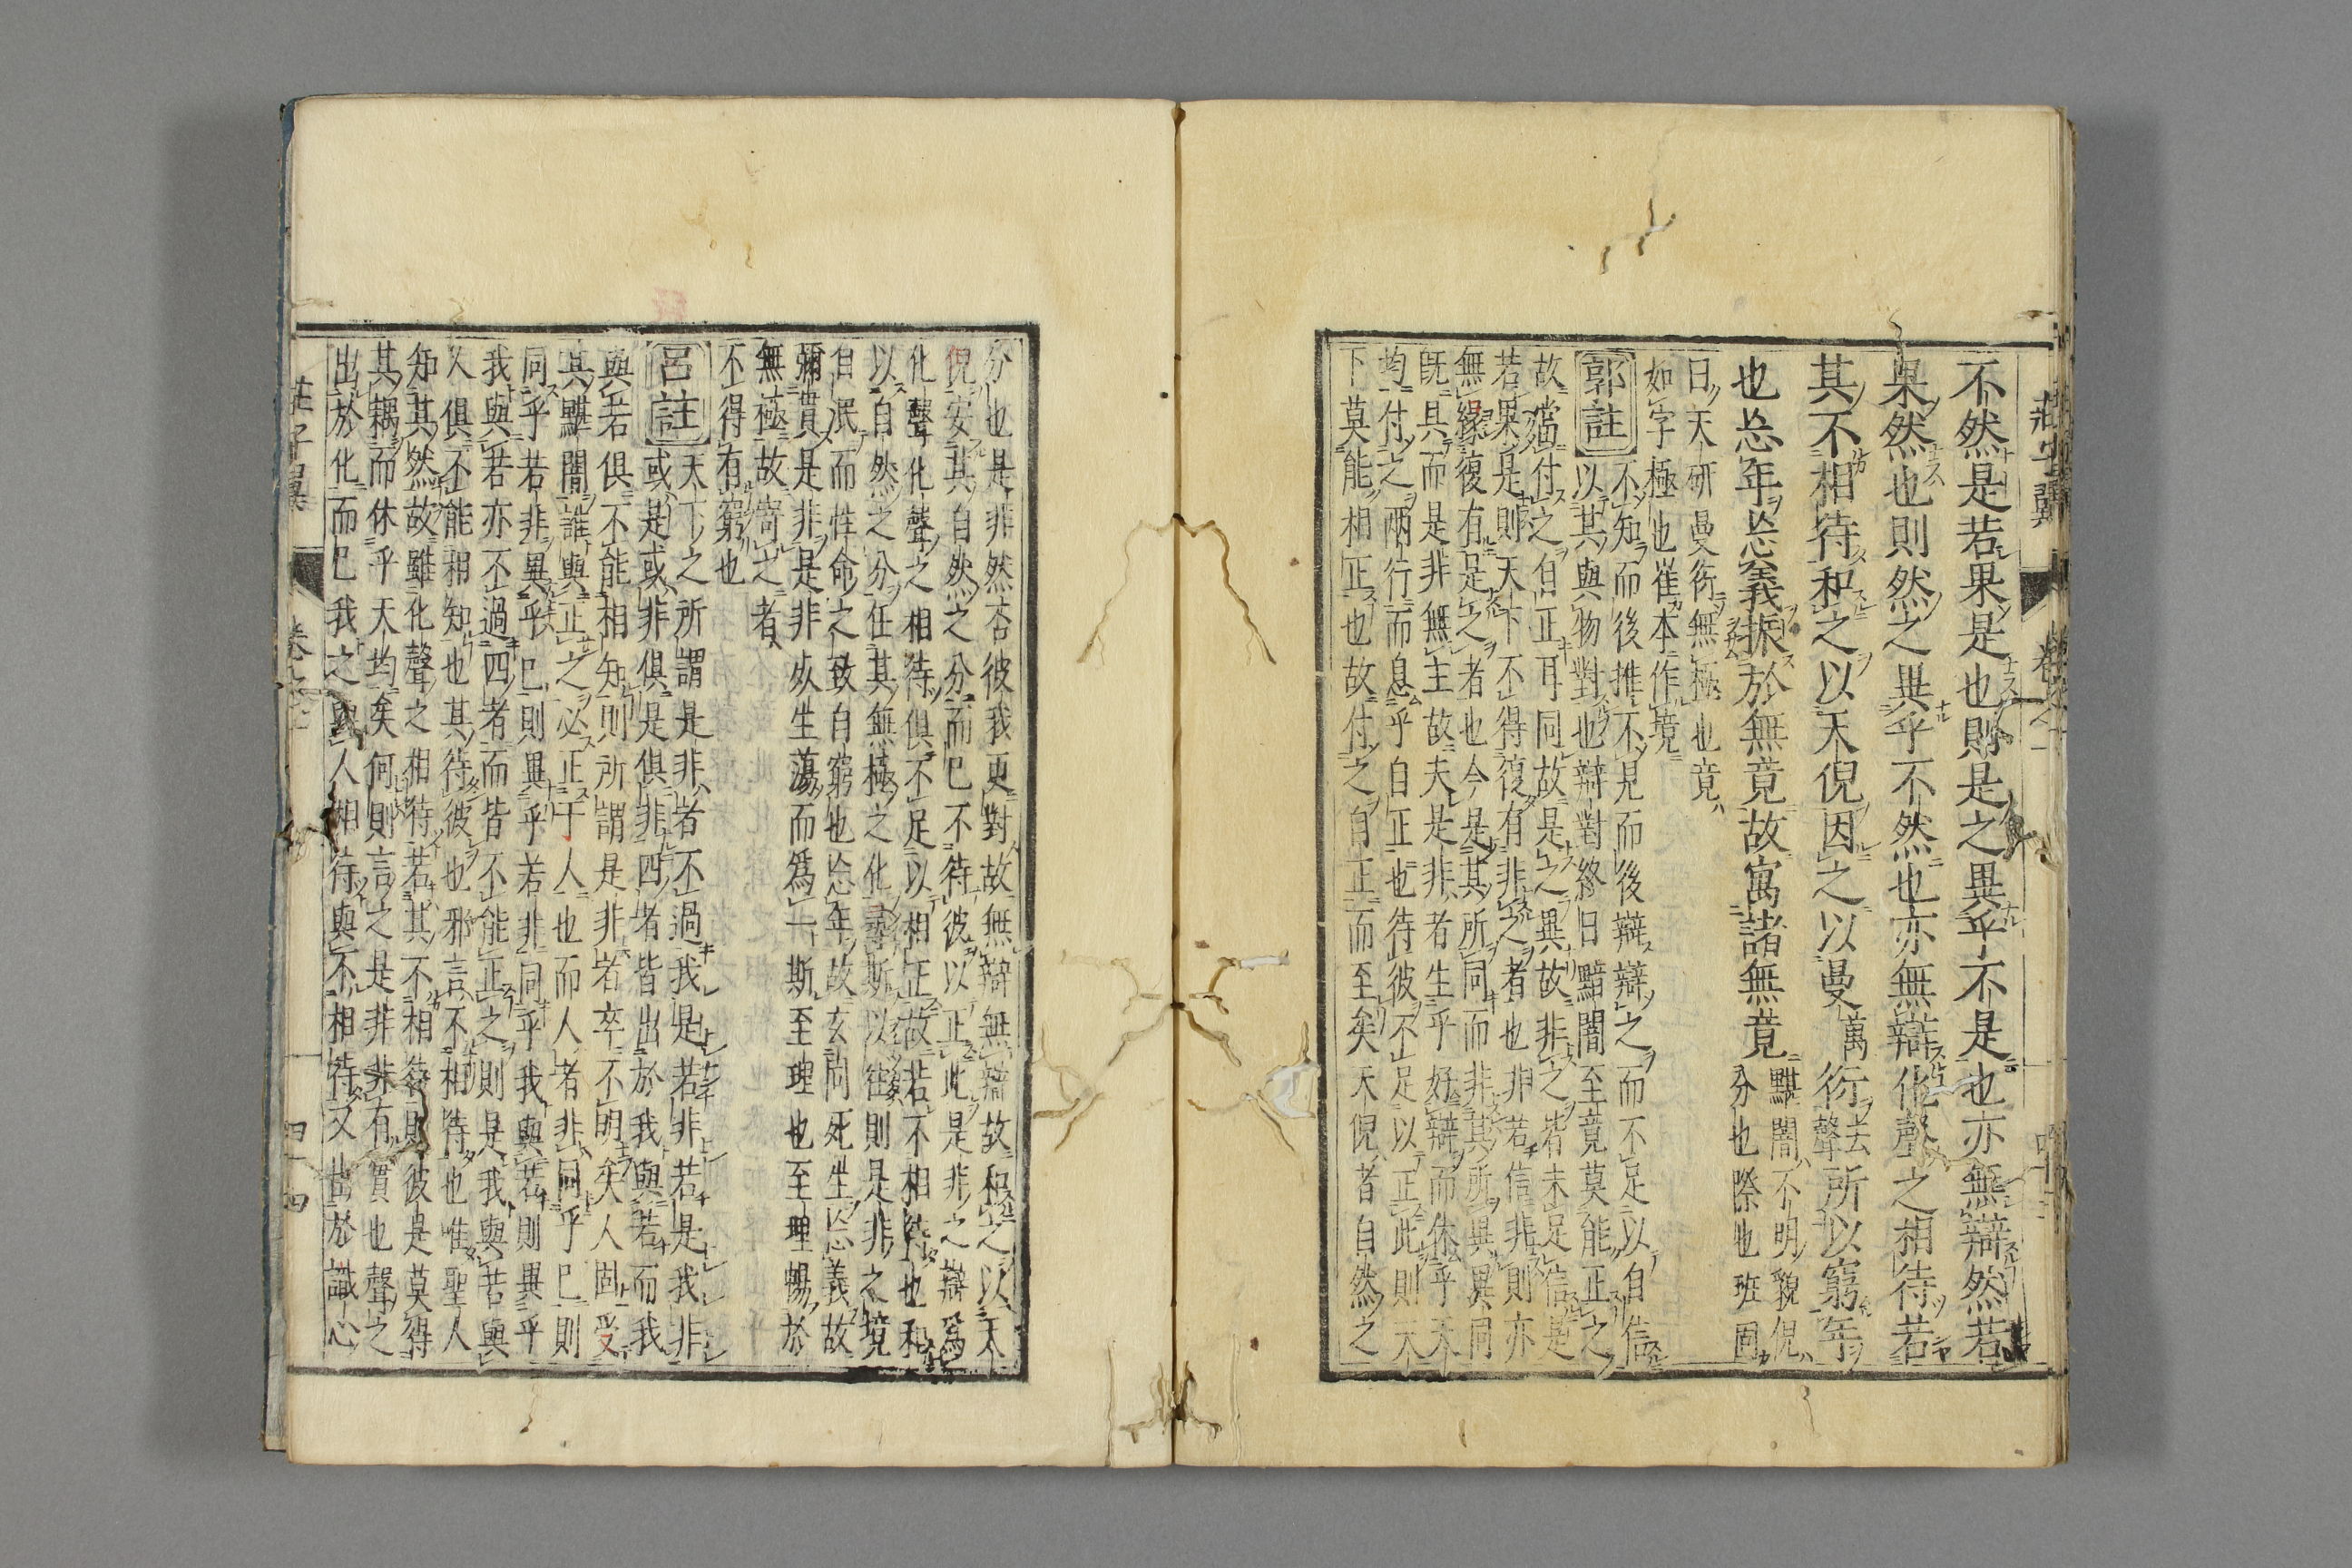 不然是若果是也則是之異乎不是也亦無辯然若
果然也則然之異乎不然也亦無辯化聲之相待若
其不相待和之以天倪因之以曼萬衍聲去所以窮年
也忘年忘義振於無竟故寓諸無竟
黮闇不明貌倪
分也際也班固
曰天研曼衍無極也竟
如字極也崔本作境
郭註
不知而後推不見而後辯辯之而不足以自信
以其與物對也辯對終日黮闇至竟莫能正之
故當付之自正耳同故是之異故非之皆未足信是
若果是則天下不得復有非之者也非若信非則亦
無緣復有是之者也今是其所同而非其所異異同
既具而是非無主故夫是非者生乎好辯而休乎天
均付之兩行而息乎自正也待彼不足以正此則天
下莫能相正也故付之自正而至矣天倪者自然之
莊子翼
卷之一
分也是非然否彼我更對故無辯無辯故和之以天
倪安其自然之分而已不待彼以正此是非之辯爲
化聲化聲之相待俱不足以相正故若不相待也和
以自然之分任其無極之化尋斯以往則是非之境
自泯而性命之致自窮也忘年故玄同死生忘義故
彌貫是非是非死生蕩而爲一斯至理也至理暢於
無極故寄之者
不得有窮也
呂註
天下之所謂是非者不過我是若非若是我非
或是或非俱是俱非四者皆出於我與若而我
與若俱不能相知則所謂是非者卒不明矣人固受
其黮闇誰與正之必正于人也而人者非同乎已則
同乎若非異乎已則異乎若非同乎我與若則異乎
我與若亦不過四者而皆不能正之則是我與若與
人俱不能相知也其待彼也邪言不相待也唯聖人
知其然故雖化聲之相待若其不相待則彼是莫得
其耦而休乎天均矣何則言之是非非有實也聲之
出於化而已我之與人相待與不相待又出於識心
莊子翼
卷之一
四十四